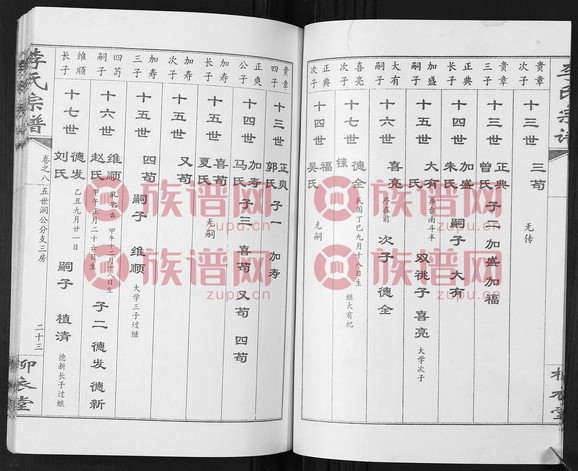 李氏宗谱
贵章
次子
十三世
三苟
无传
贵章
三子
十三世
正典
曾氏
子二
加盛
加福
正典
长子
十四世
加盛
朱氏
嗣子
大有
加盛
嗣子
十五世
大有
双祧子
喜亮
大学次子
大有
嗣子
十六世
喜亮
次子
德全
喜亮
次子
十七世
德全
民国丁巳九月十八日生
继大有祀
正典
次子
十四世
加福
吴氏
无嗣
贵章
四子
十三世
正爽
郭氏
子一
加寿
正爽
公子
十四世
加寿
马氏
子三
喜苟
又苟
四苟
加寿
长子
十五世
喜苟
夏氏
无嗣
加寿
次子
十五世
又苟
加寿
三子
十五世
四苟
嗣子
维顺
大学三子过继
四苟
嗣子
十六世
维顺
赵氏
甲午正月二十六日生
子二
德发
德新
维顺
长子
十七世
德发
刘氏
乙丑九月廿一日
嗣子
植清
德新长子过继
李氏宗谱
卷之八
五世洞公分支三房
二十三
柳衣堂
族谱网
zupu.cn